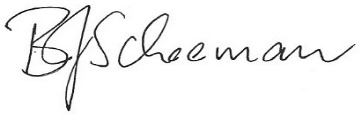 BJ Scheeman